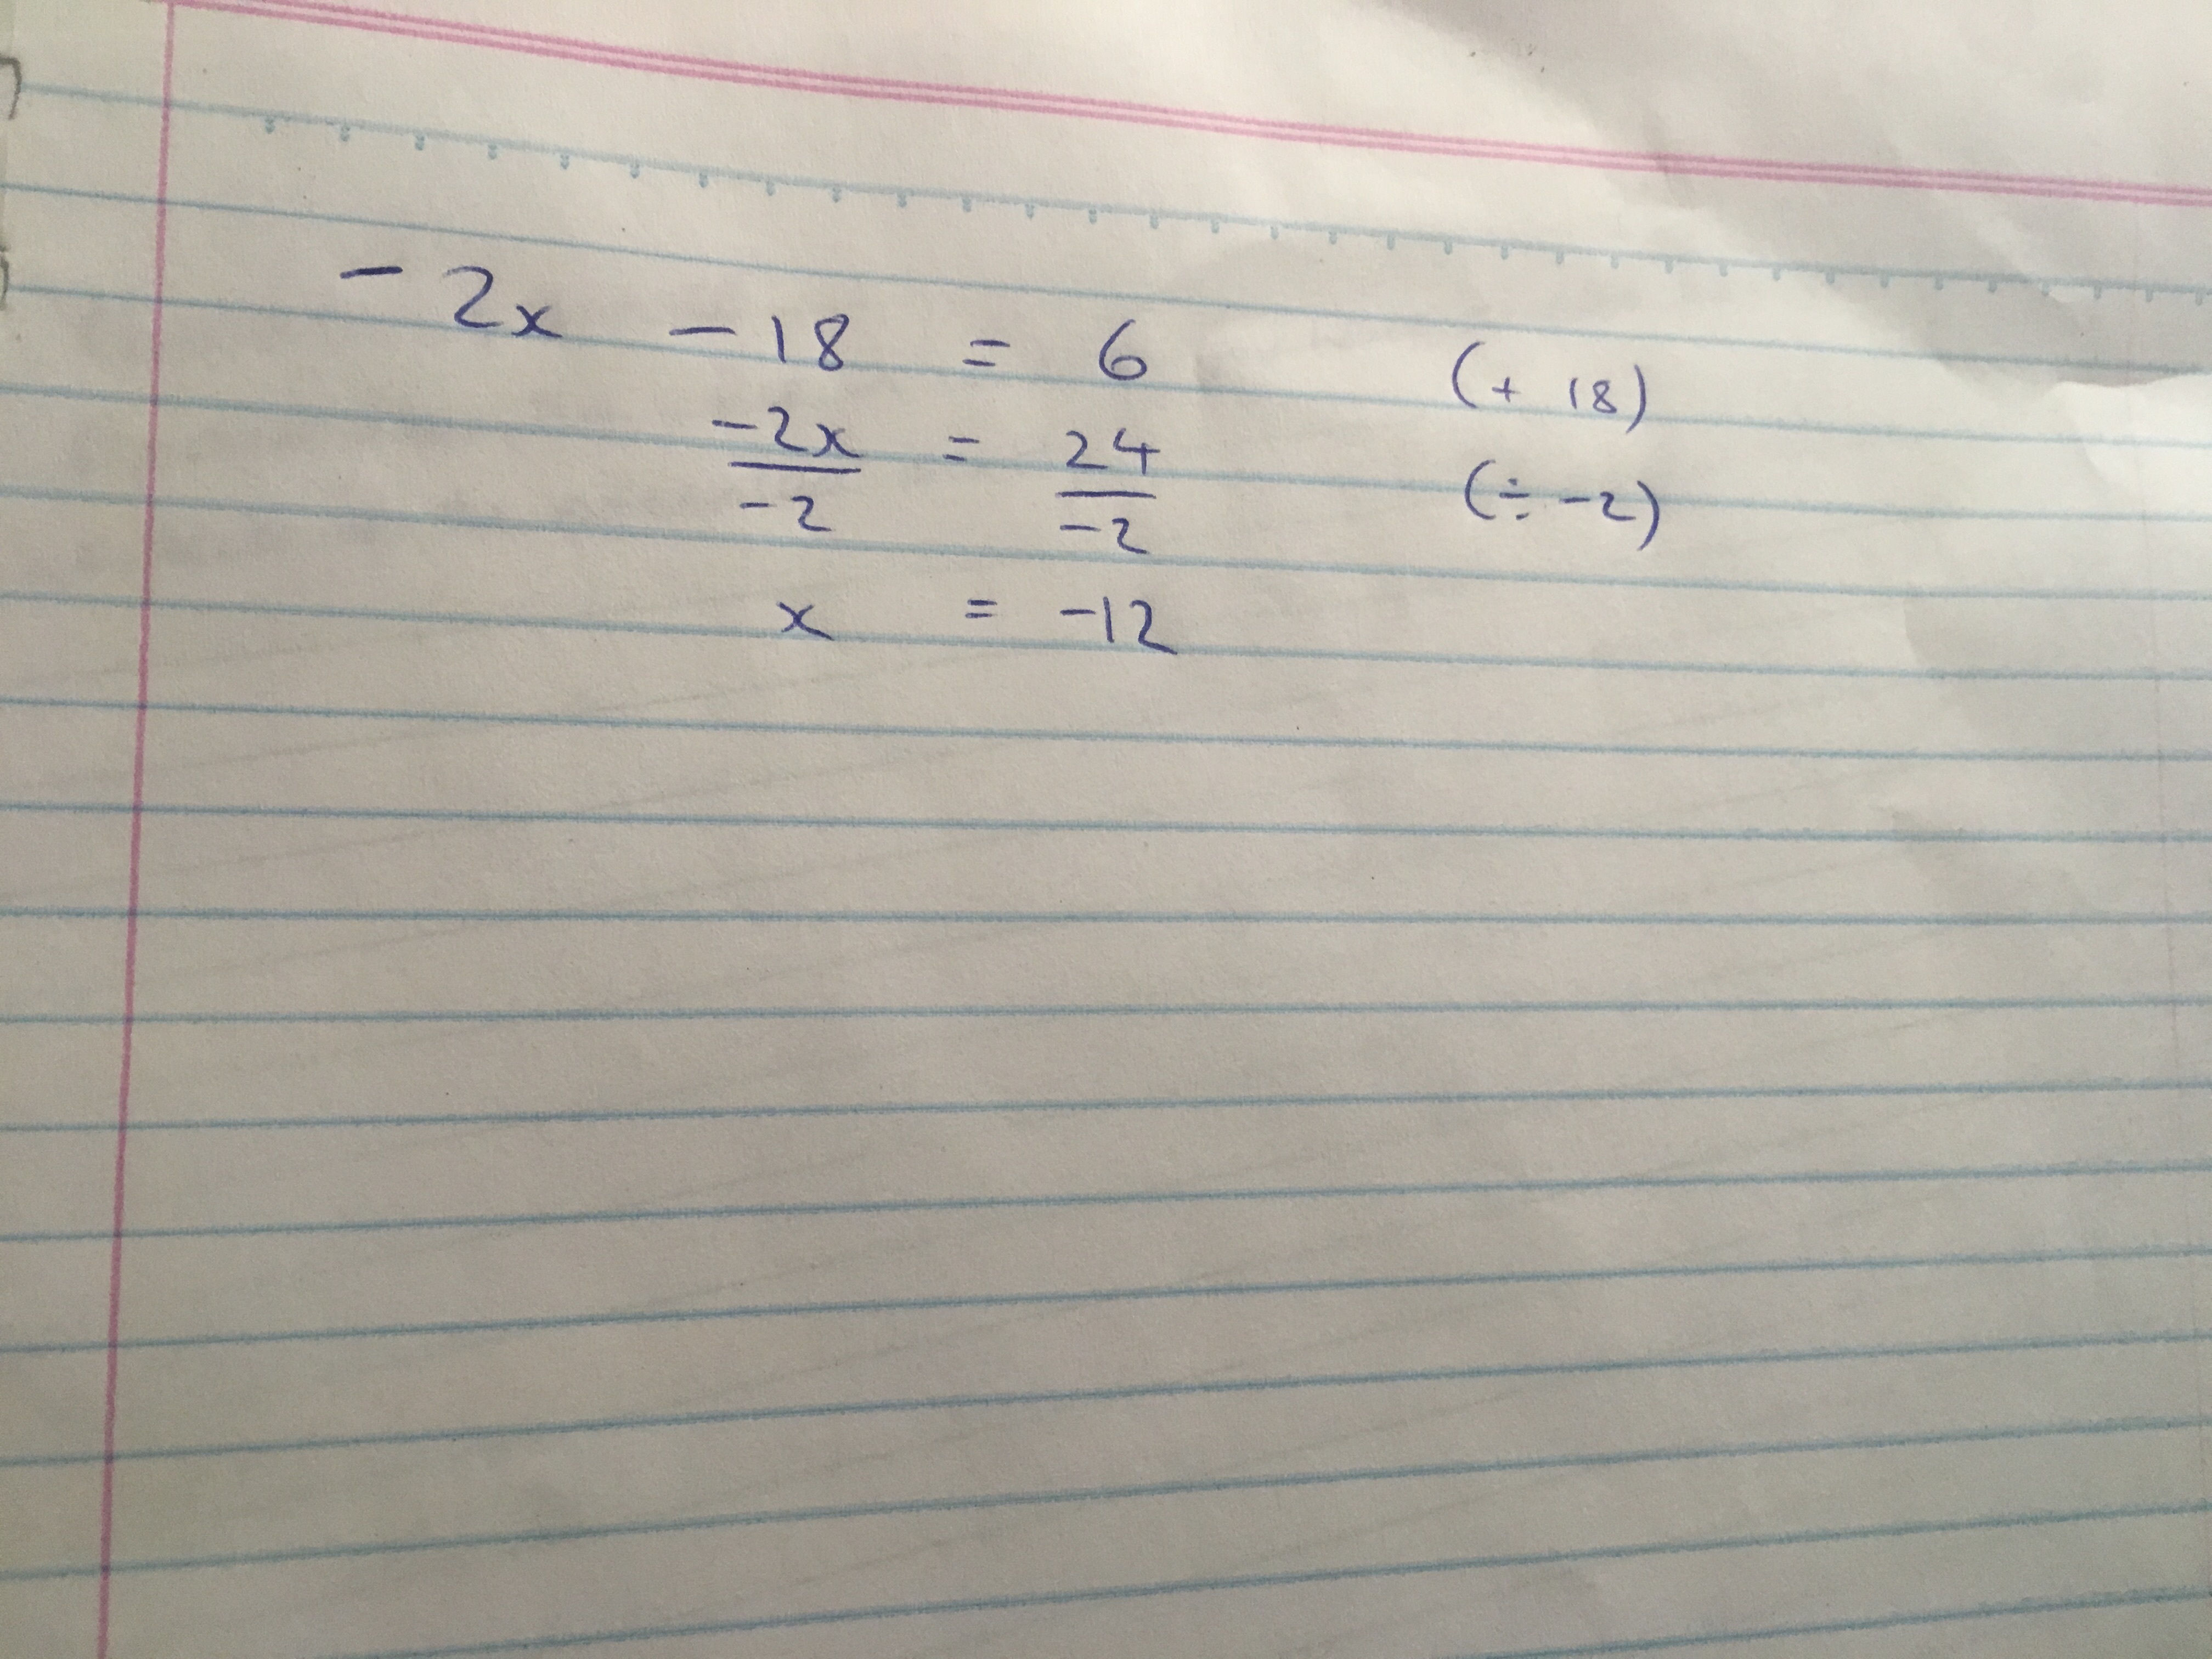 -2x - 18 = 6 (+ 18)
-2x/-2 = 24/-2 (÷ -2)
x = -12